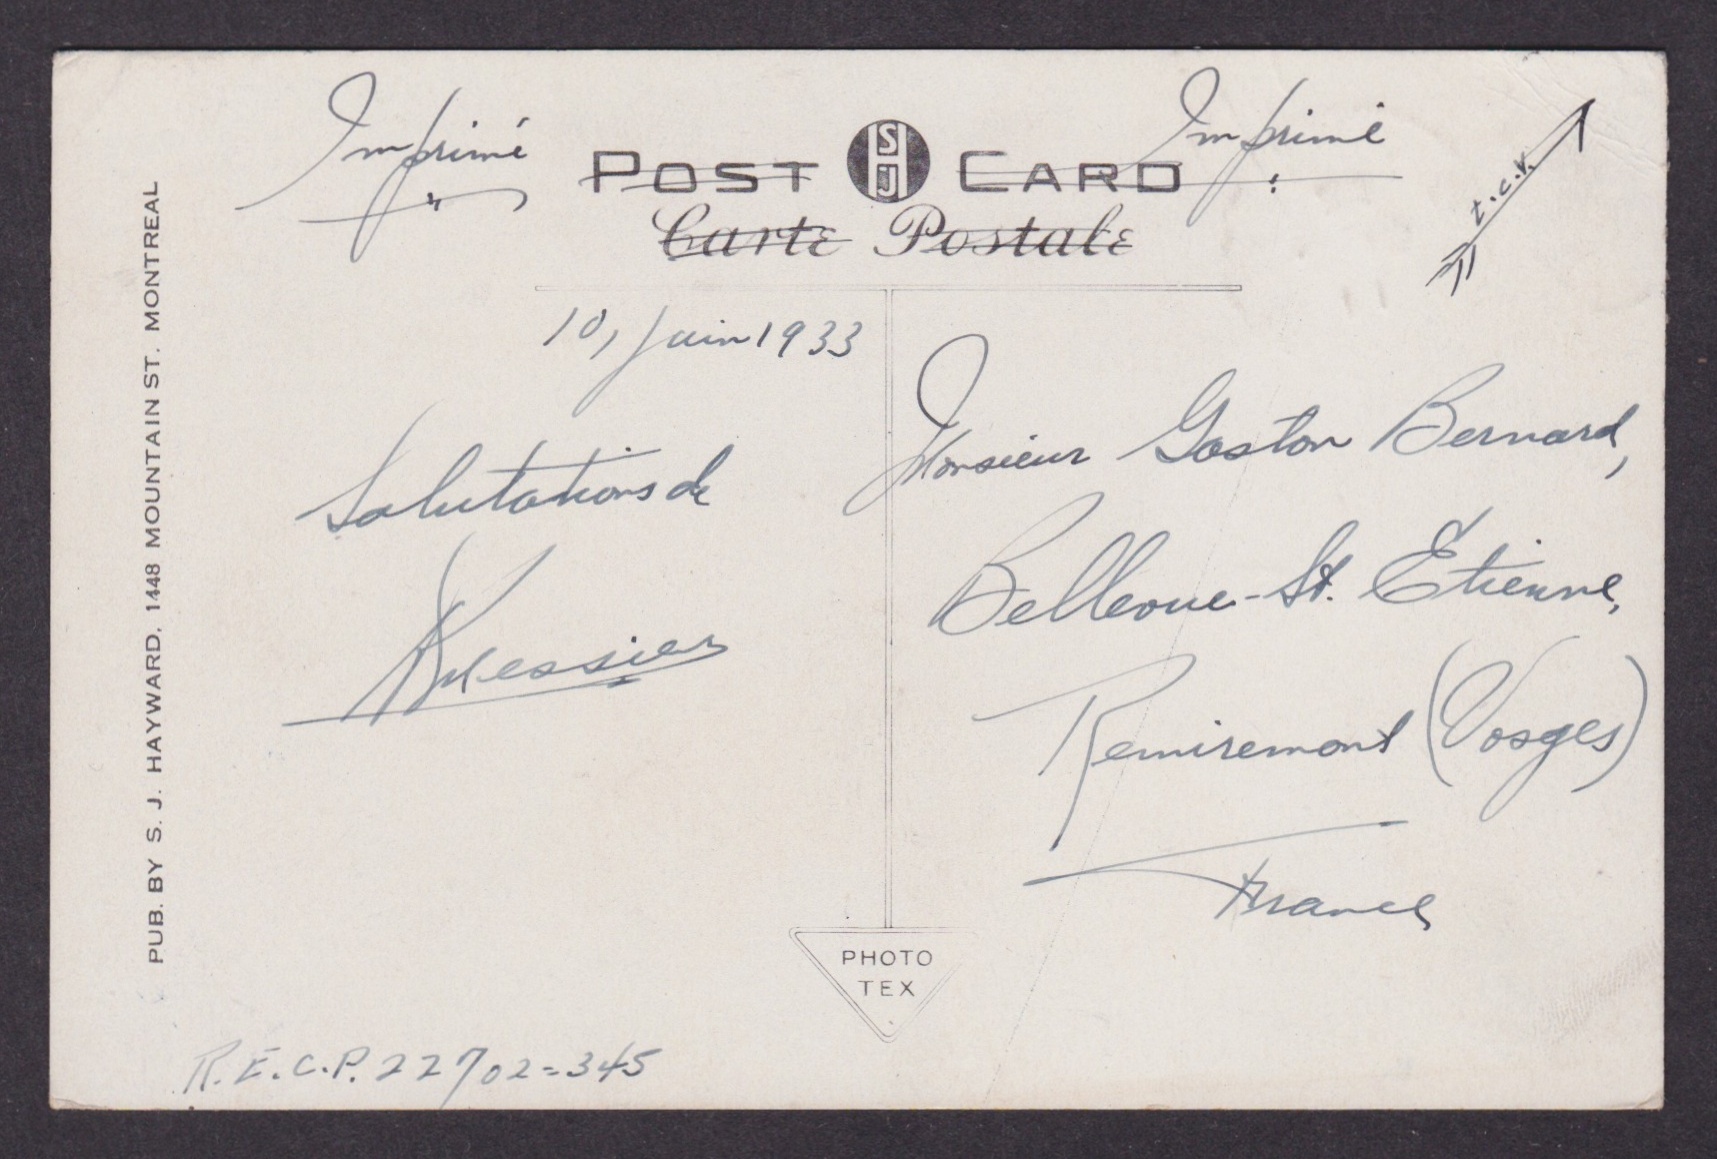 Imprimé
Imprimé
POST SJH CARD
Carte Postale
t.c.v.
10, Juin 1933
Salutations de
Monsieur Gaston Bernard,
Bellevue-St. Etienne,
Remiremont (Vosges)
France
PHOTO
TEX
R.E.C.P. 22702=345
PUB. BY S. J. HAYWARD, 1448 MOUNTAIN ST. MONTREAL